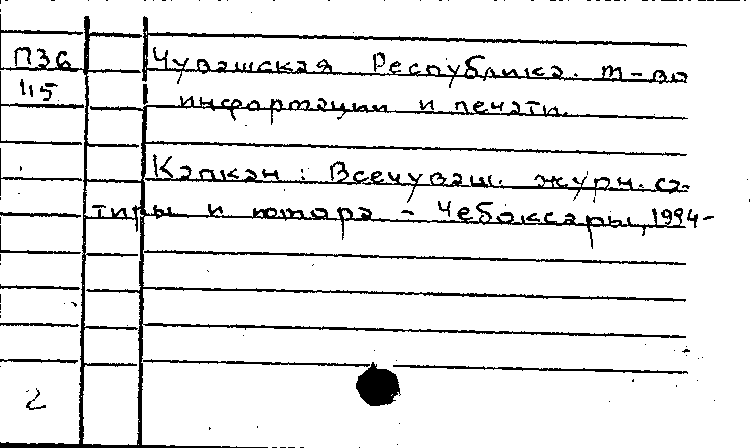 П36
115
Чувашская Республика. т-во
информации и печати.
Капкан : Всечуваш. журн. са-
тиры и юмора - Чебоксары, 1994-
2